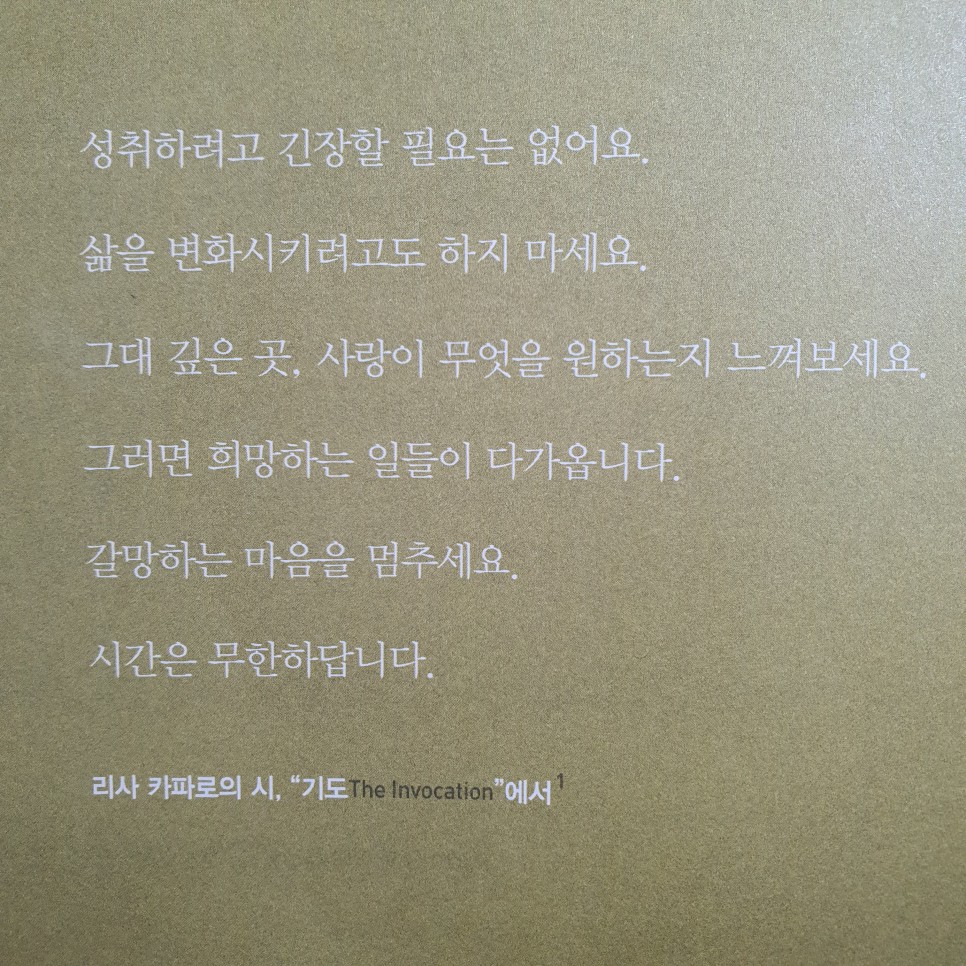 성취하려고 긴장할 필요는 없어요.
삶을 변화시키려고도 하지 마세요.
그대 깊은 곳, 사랑이 무엇을 원하는지 느껴보세요.
그러면 희망하는 일들이 다가옵니다.
갈망하는 마음을 멈추세요.
시간은 무한하답니다.
리사 카파로의 시, “기도The Invocation”에서1